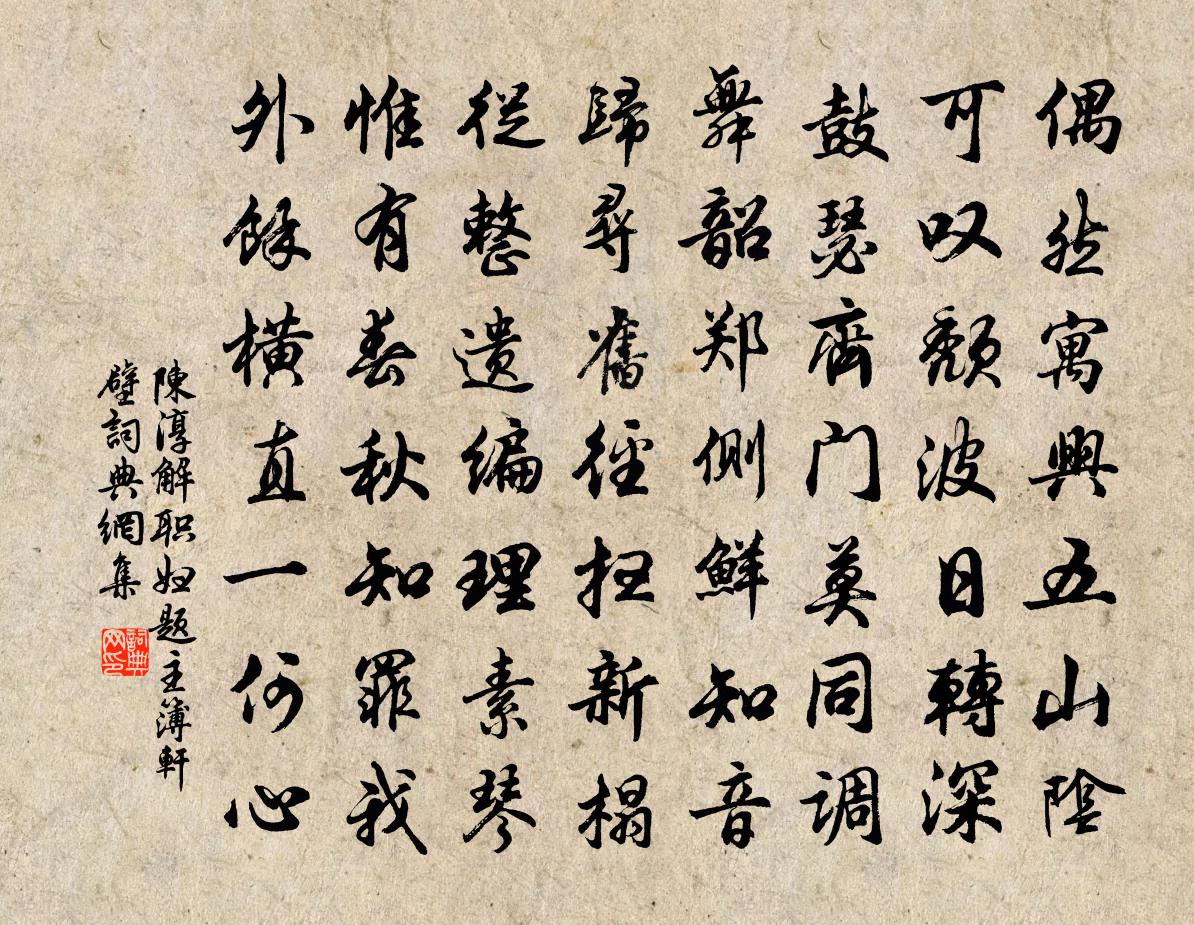 偶然寓興五山陰
可叹颓波日轉深
鼓瑟齊门莫同调
舞韶郑侧鲜知音
歸尋舊徑扫新榻
從整遗编理素琴
惟有春秋知罪我
外餘横直一何心
陳淳解职始题主簿軒
壁詞典網集
詞典
网印